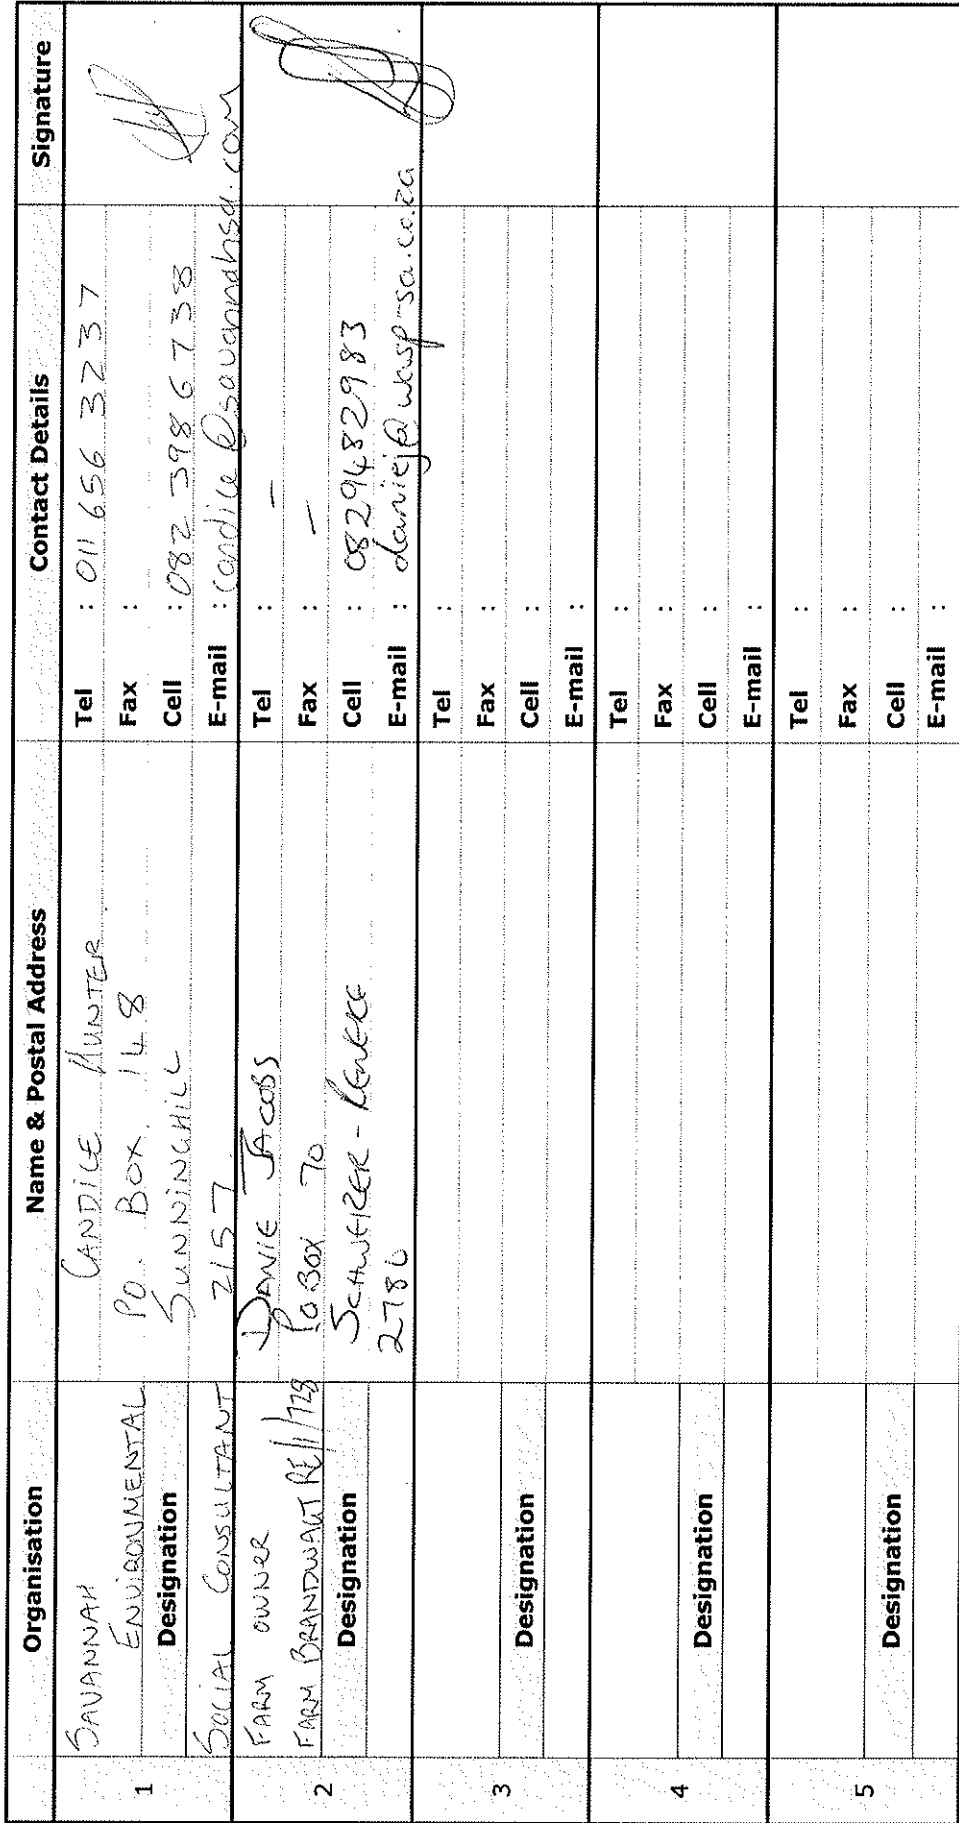 Organisation Name & Postal Address Contact Details Signature
1
SAVANNAH
ENVIRONMENTAL
Designation
SOCIAL CONSULTANT
CANDICE HUNTER
PO. BOX. 148
SUNNINGHILL
2157
Tel : 011 656 3237
Fax :
Cell : 082 398 6738
E-mail : candice@savannahsa.com
2
FARM OWNER
FARM BRANDWAGT RE/1/728
Designation
DANIE JACOBS
PO BOX 70
SCHWEIZER-RENEKE
2780
Tel : –
Fax : –
Cell : 0829482983
E-mail : daniej@wasp-sa.co.za
3
Designation
Tel :
Fax :
Cell :
E-mail :
4
Designation
Tel :
Fax :
Cell :
E-mail :
5
Designation
Tel :
Fax :
Cell :
E-mail :